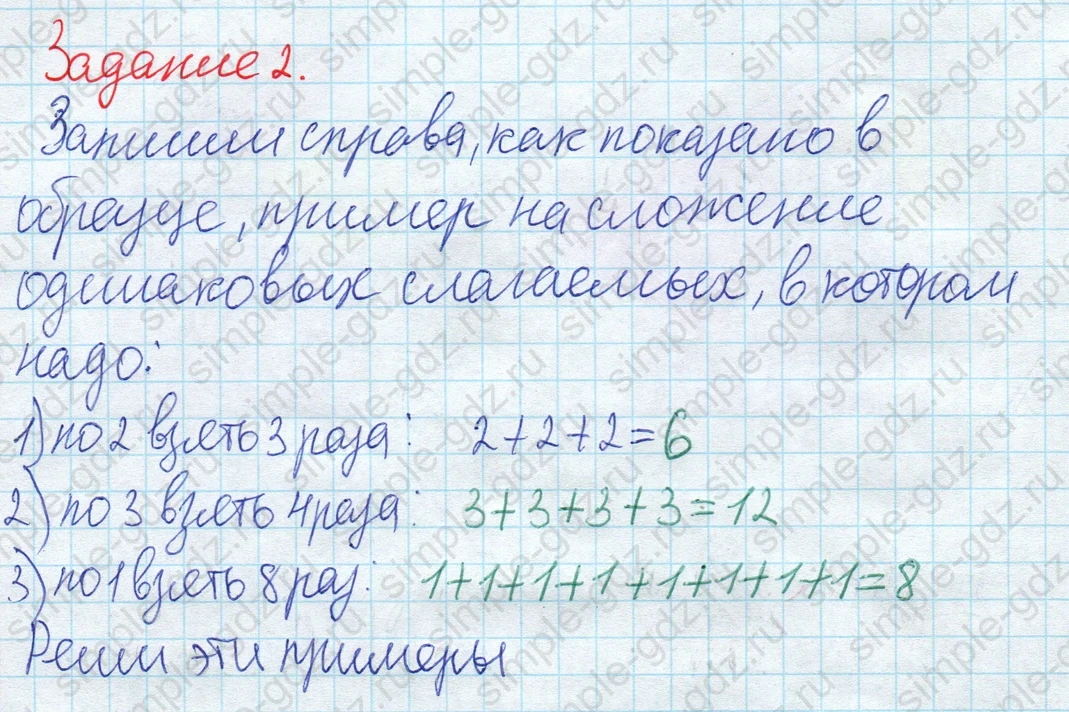 Задание 2.
Запиши справа, как показано в
образце, пример на сложение
одинаковых слагаемых, в котором
надо:
1) по 2 взять 3 раза: 2+2+2=6
2) по 3 взять 4 раза: 3+3+3+3=12
3) по 1 взять 8 раз: 1+1+1+1+1+1+1+1=8
Реши эти примеры
simple-gdz.ru